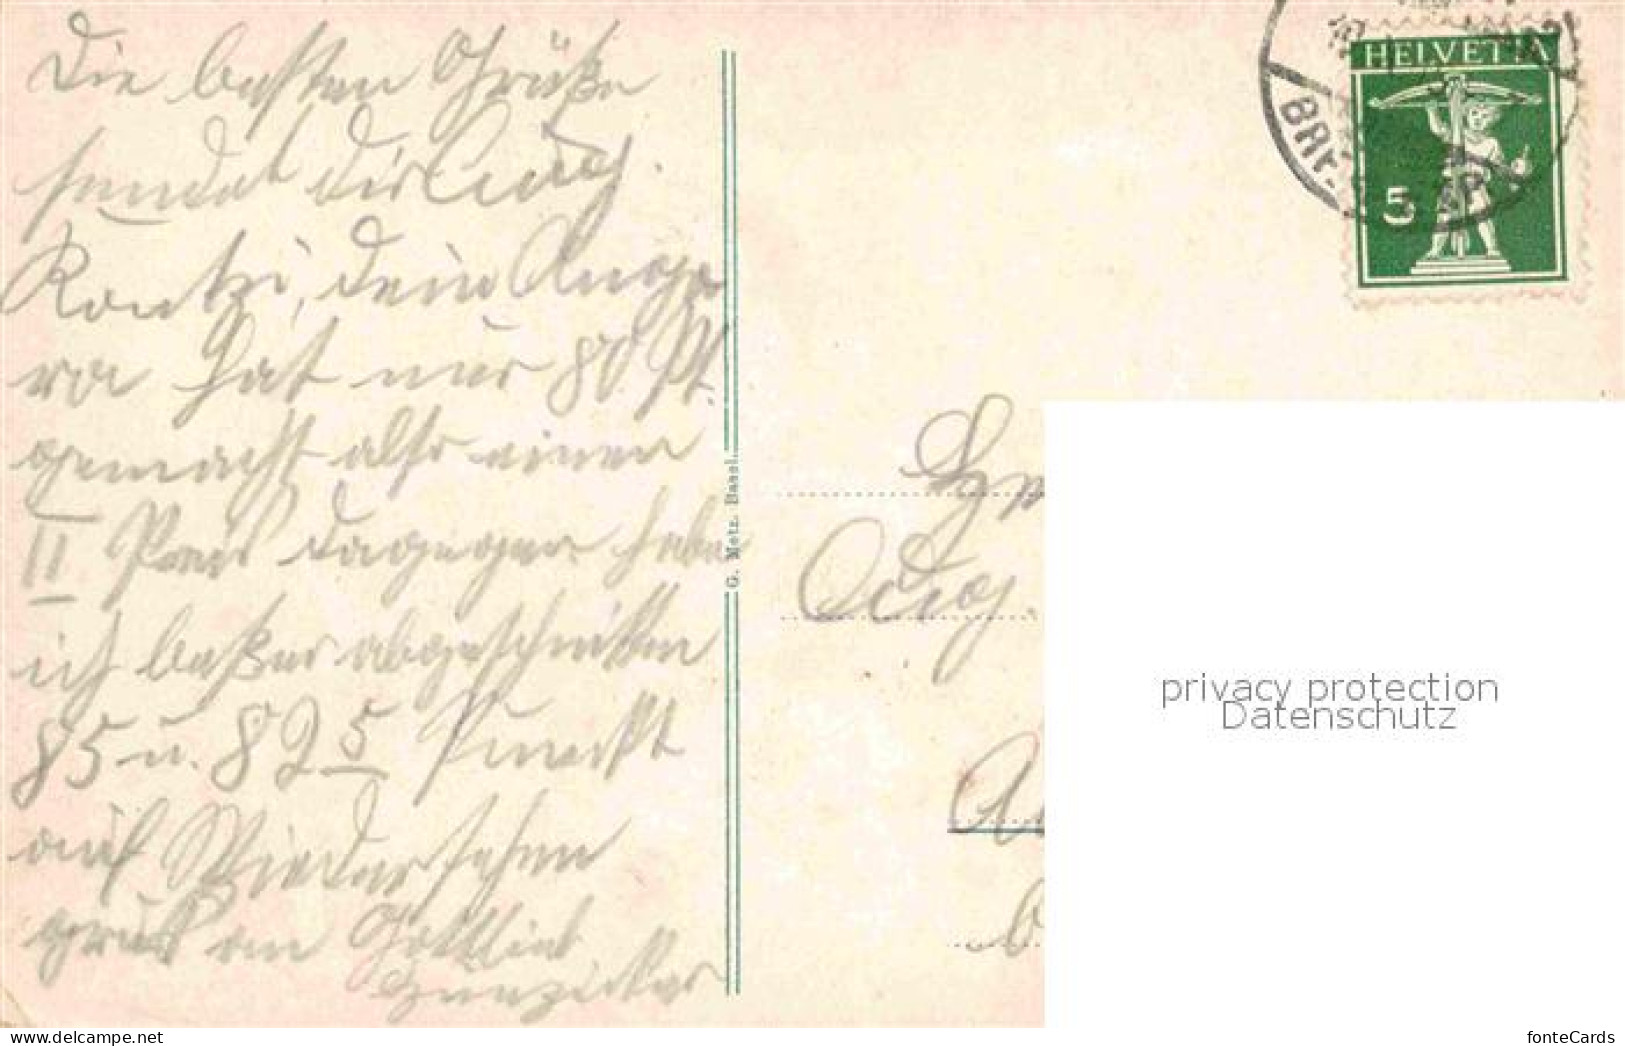 Die besten Grüße
sendet dir Aug.
Kontzi, dein Ango
ra hat nur 80 Pt.
gemacht also einen
II Preis dagegen habe
ich beßer abgeschnitten
85 u. 82 5 Punckt
auf Wiedersehen
gruß an Gottlieb
Hunzicker
G. Metz, Basel.
HELVETIA
5
Aug.
privacy protection
Datenschutz
fonteCards